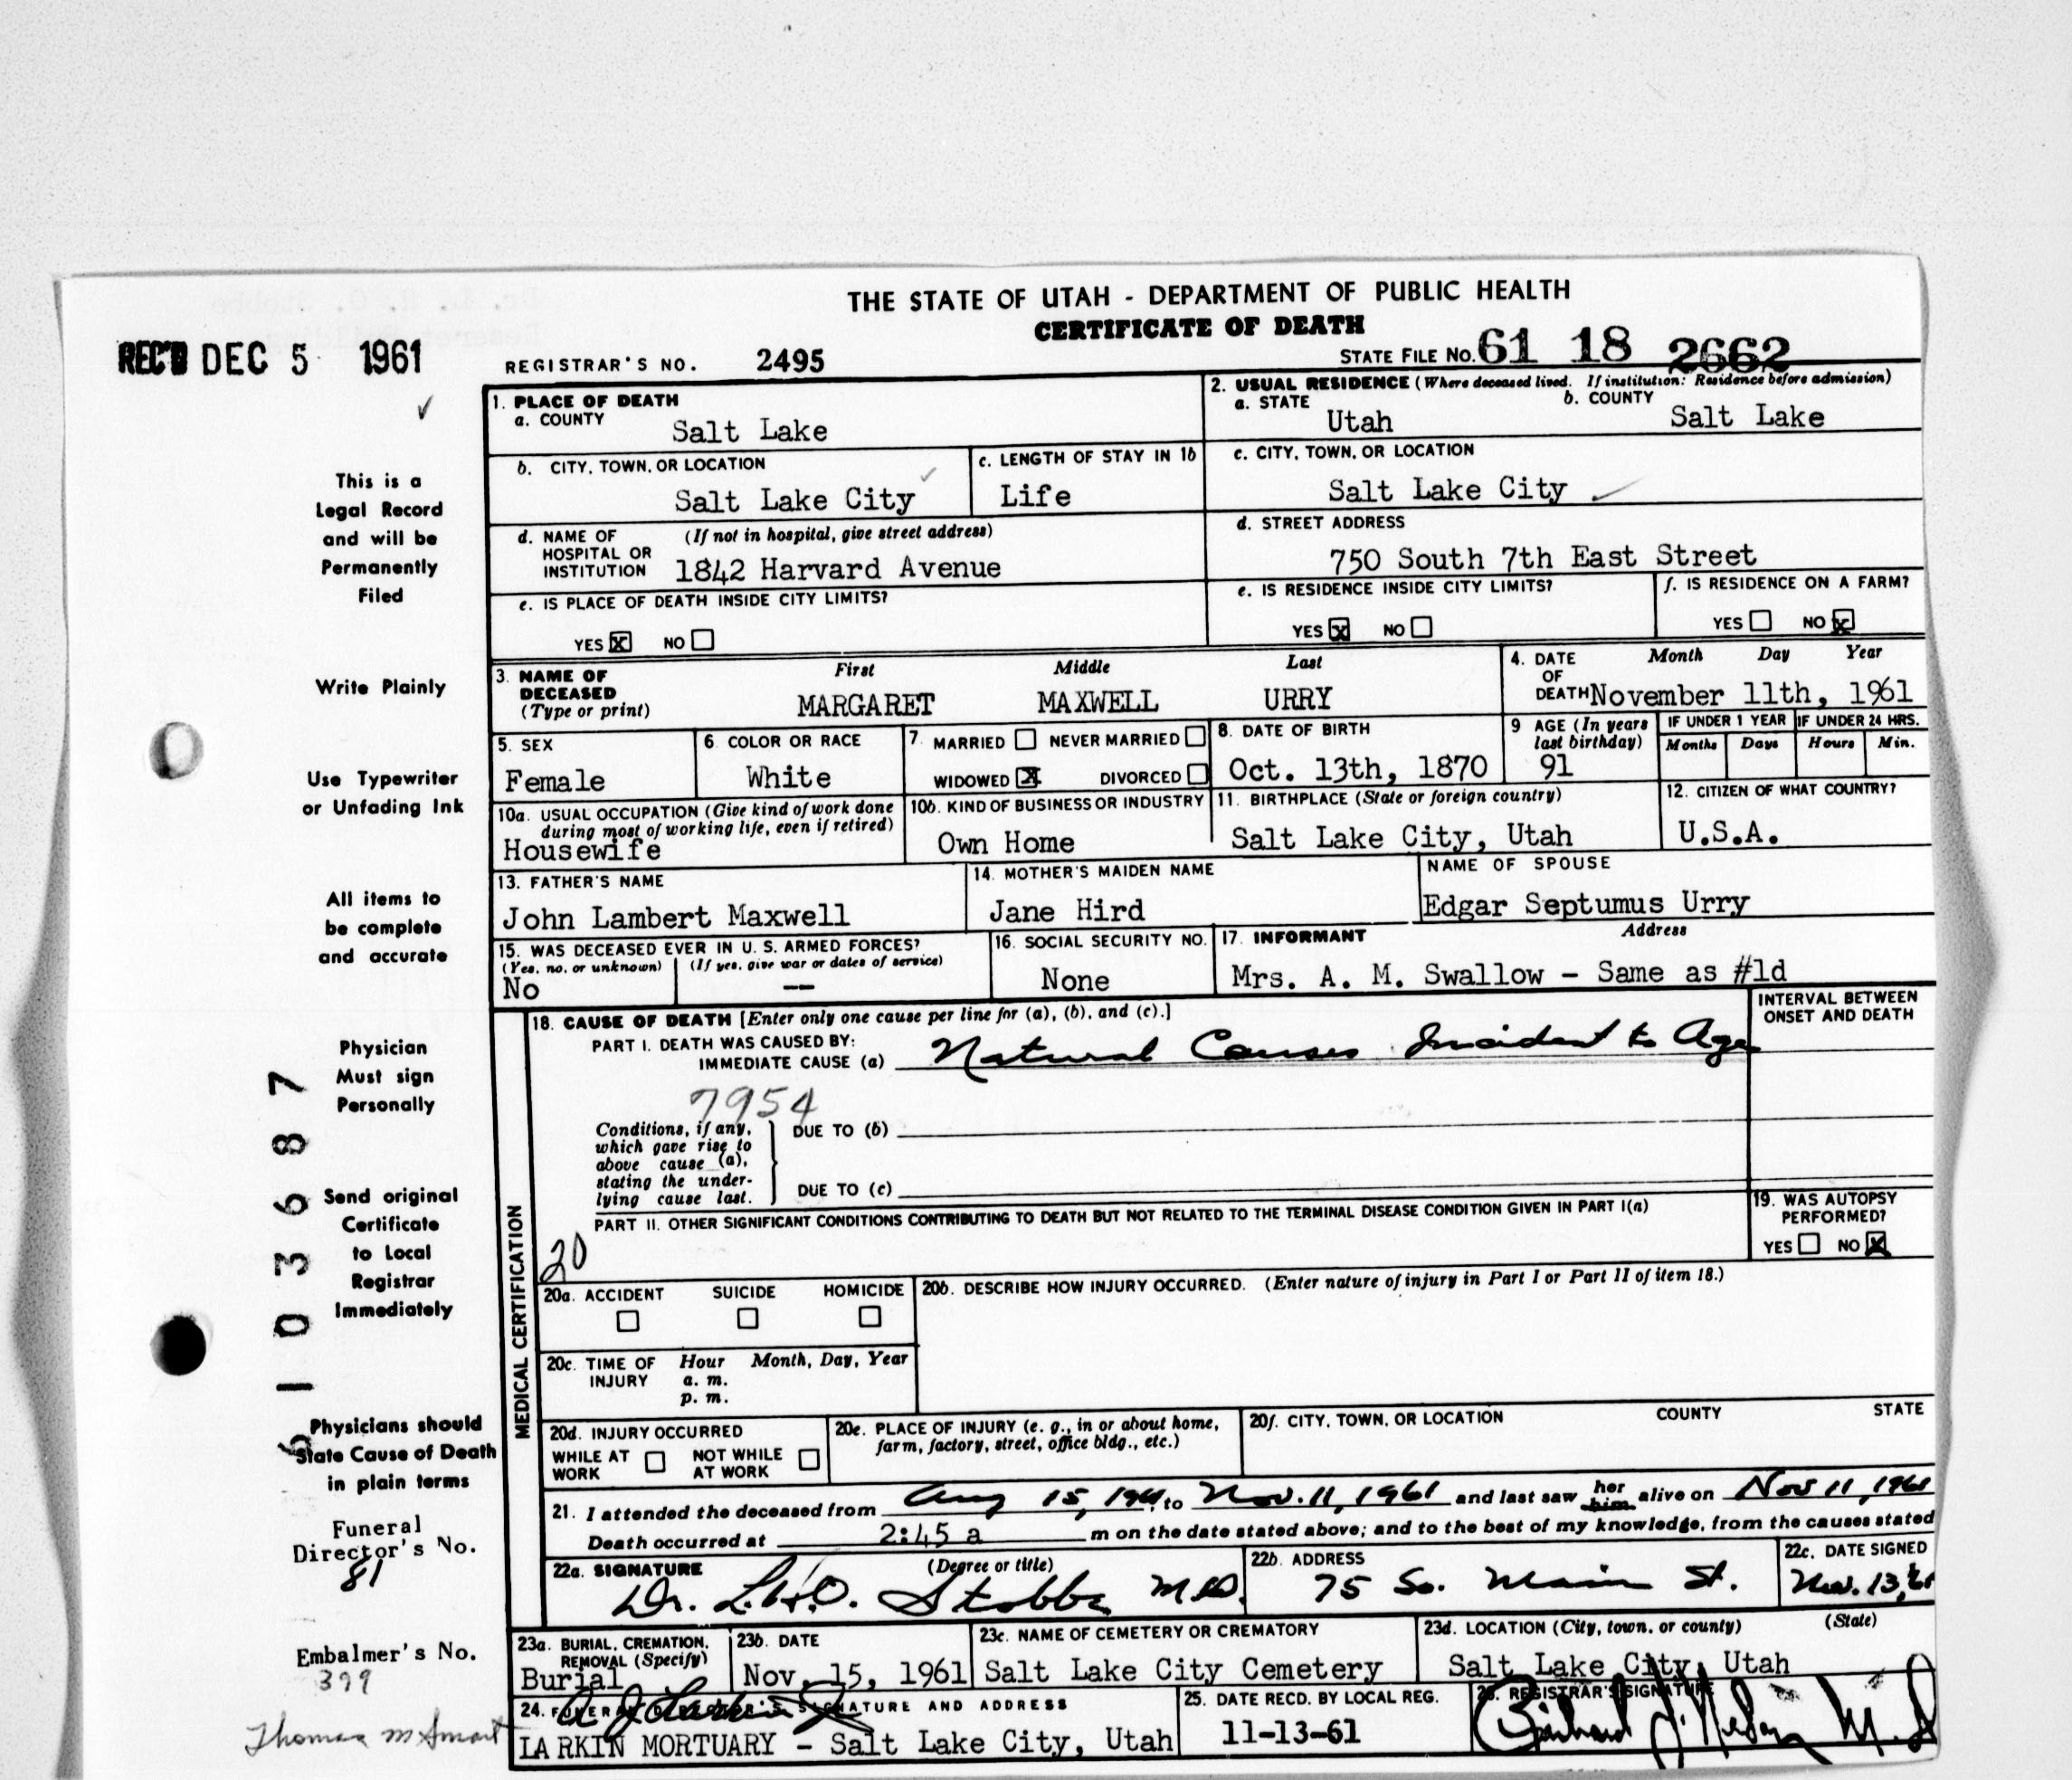 THE STATE OF UTAH - DEPARTMENT OF PUBLIC HEALTH
CERTIFICATE OF DEATH
REC'D DEC 5 1961
REGISTRAR'S NO. 2495
STATE FILE NO. 61 18 2662
1. PLACE OF DEATH
a. COUNTY
Salt Lake
2. USUAL RESIDENCE (Where deceased lived. If institution: Residence before admission)
a. STATE b. COUNTY
Utah Salt Lake
b. CITY, TOWN, OR LOCATION
Salt Lake City
c. LENGTH OF STAY IN 1b
Life
c. CITY, TOWN, OR LOCATION
Salt Lake City
d. NAME OF (If not in hospital, give street address)
HOSPITAL OR
INSTITUTION 1842 Harvard Avenue
d. STREET ADDRESS
750 South 7th East Street
e. IS PLACE OF DEATH INSIDE CITY LIMITS?
YES X NO
e. IS RESIDENCE INSIDE CITY LIMITS?
YES X NO
f. IS RESIDENCE ON A FARM?
YES NO X
3. NAME OF First Middle Last
DECEASED
(Type or print) MARGARET MAXWELL URRY
4. DATE Month Day Year
OF
DEATH November 11th, 1961
5. SEX
Female
6. COLOR OR RACE
White
7. MARRIED NEVER MARRIED
WIDOWED X DIVORCED
8. DATE OF BIRTH
Oct. 13th, 1870
9 AGE (In years
last birthday)
91
IF UNDER 1 YEAR IF UNDER 24 HRS.
Months Days Hours Min.
10a. USUAL OCCUPATION (Give kind of work done
during most of working life, even if retired)
Housewife
10b. KIND OF BUSINESS OR INDUSTRY
Own Home
11. BIRTHPLACE (State or foreign country)
Salt Lake City, Utah
12. CITIZEN OF WHAT COUNTRY?
U.S.A.
13. FATHER'S NAME
John Lambert Maxwell
14. MOTHER'S MAIDEN NAME
Jane Hird
NAME OF SPOUSE
Edgar Septumus Urry
15. WAS DECEASED EVER IN U. S. ARMED FORCES?
(Yes, no, or unknown) (If yes, give war or dates of service)
No --
16. SOCIAL SECURITY NO.
None
17. INFORMANT Address
Mrs. A. M. Swallow - Same as #1d
18. CAUSE OF DEATH [Enter only one cause per line for (a), (b), and (c).]
PART I. DEATH WAS CAUSED BY:
IMMEDIATE CAUSE (a) Natural Causes Incident to Age
INTERVAL BETWEEN
ONSET AND DEATH
7954
Conditions, if any,
which gave rise to
above cause (a),
stating the under-
lying cause last.
DUE TO (b)
DUE TO (c)
PART II. OTHER SIGNIFICANT CONDITIONS CONTRIBUTING TO DEATH BUT NOT RELATED TO THE TERMINAL DISEASE CONDITION GIVEN IN PART I(a)
20
19. WAS AUTOPSY
PERFORMED?
YES NO X
MEDICAL CERTIFICATION
20a. ACCIDENT SUICIDE HOMICIDE
20b. DESCRIBE HOW INJURY OCCURRED. (Enter nature of injury in Part I or Part II of item 18.)
20c. TIME OF Hour Month, Day, Year
INJURY a. m.
p. m.
20d. INJURY OCCURRED
WHILE AT NOT WHILE
WORK AT WORK
20e. PLACE OF INJURY (e. g., in or about home,
farm, factory, street, office bldg., etc.)
20f. CITY, TOWN, OR LOCATION COUNTY STATE
21. I attended the deceased from Aug 15, 1961, to Nov. 11, 1961 and last saw her him alive on Nov 11, 1961
Death occurred at 2:45 a m on the date stated above; and to the best of my knowledge, from the causes stated
22a. SIGNATURE (Degree or title)
Dr. L.H.O. Stobbe M.D.
22b. ADDRESS
75 So. Main St.
22c. DATE SIGNED
Nov. 13, 61
23a. BURIAL, CREMATION,
REMOVAL (Specify)
Burial
23b. DATE
Nov. 15, 1961
23c. NAME OF CEMETERY OR CREMATORY
Salt Lake City Cemetery
23d. LOCATION (City, town, or county) (State)
Salt Lake City, Utah
24. FUNERAL DIRECTOR'S SIGNATURE AND ADDRESS
LARKIN MORTUARY - Salt Lake City, Utah
25. DATE RECD. BY LOCAL REG.
11-13-61
26. REGISTRAR'S SIGNATURE
This is a
Legal Record
and will be
Permanently
Filed
Write Plainly
Use Typewriter
or Unfading Ink
All items to
be complete
and accurate
Physician
Must sign
Personally
Send original
Certificate
to Local
Registrar
Immediately
Physicians should
State Cause of Death
in plain terms
Funeral
Director's No.
81
Embalmer's No.
399
Thomas M Smart
6 1 0 3 6 8 7